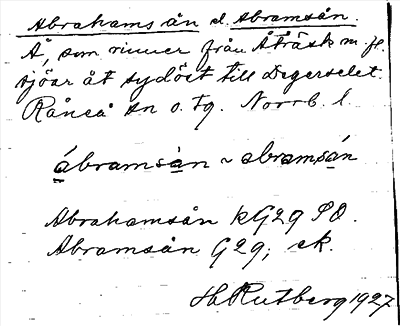 Abrahamsån el. Abramsån.
Å, som rinner från Åträsk m. fl.
sjöar åt sydöst till Degerselet.
Råneå sn o. tg. Norrb. l.
ábramsàn ~ abramsán
Abrahamsån kG29 SO.
Abramsån G29; ek.
H. Rutberg 1927